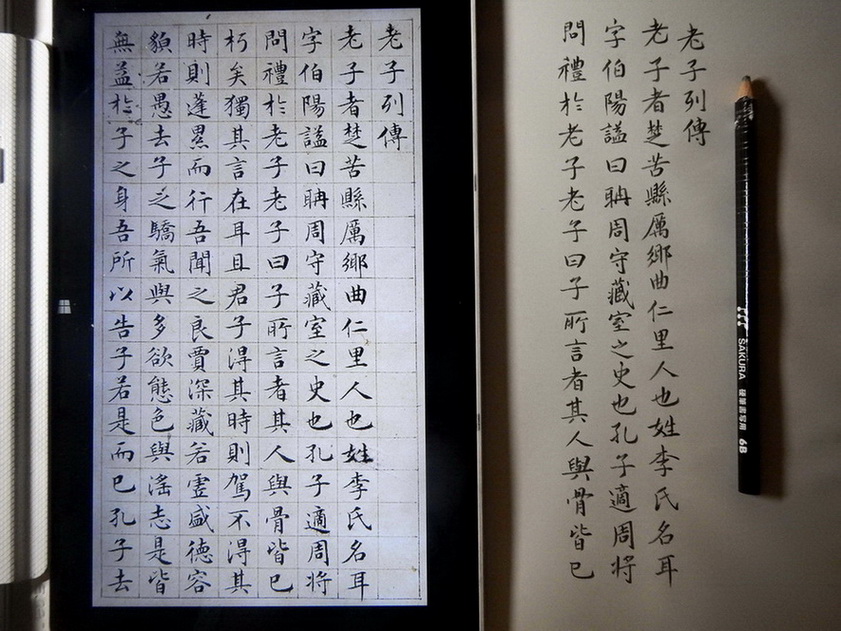 老子列傳
老子者楚苦縣厲鄉曲仁里人也姓李氏名耳
字伯陽謚曰聃周守藏室之史也孔子適周將
問禮於老子老子曰子所言者其人與骨皆已
朽矣獨其言在耳且君子得其時則駕不得其
時則蓬累而行吾聞之良賈深藏若虛盛德容
貌若愚去子之驕氣與多欲態色與淫志是皆
無益於子之身吾所以告子若是而已孔子去
老子列傳
老子者楚苦縣厲鄉曲仁里人也姓李氏名耳
字伯陽謚曰聃周守藏室之史也孔子適周將
問禮於老子老子曰子所言者其人與骨皆已
SAKURA 硬筆書写用 6B